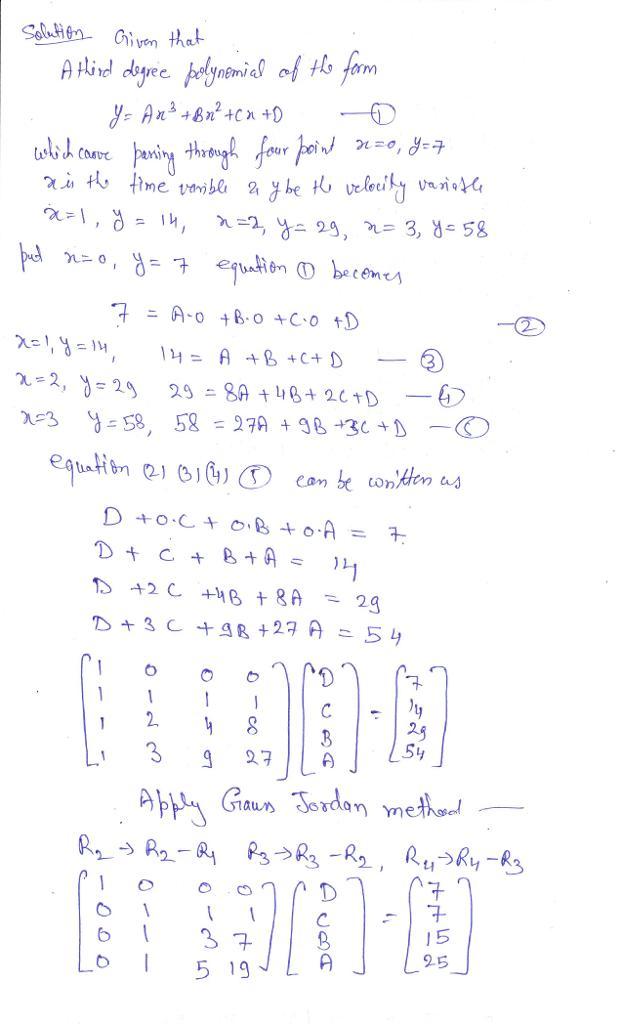 Solution Given that
A third degree polynomial of the form
y = Ax³ + Bx² + Cx + D —①
which carve passing through four point x=0, y=7
x is the time varible & y be the velocity variable
x=1, y = 14, x=2, y= 29, x= 3, y= 58
put x=0, y= 7 equation ① becomes
7 = A·0 + B·0 + C·0 + D —②
x=1, y=14, 14 = A + B + C + D —③
x=2, y=29 29 = 8A + 4B + 2C + D —④
x=3 y=58, 58 = 27A + 9B + 3C + D —⑤
equation (2) (3) (4) ⑤ can be written as
D + 0·C + 0·B + 0·A = 7
D + C + B + A = 14
D + 2C + 4B + 8A = 29
D + 3C + 9B + 27A = 54
1 0 0 0 D 7
1 1 1 1 C = 14
1 2 4 8 B 29
1 3 9 27 A 54
Apply Gauss Jordan method —
R₂ → R₂ - R₁ R₃ → R₃ - R₂, R₄ → R₄ - R₃
1 0 0 0 D 7
0 1 1 1 C = 7
0 1 3 7 B 15
0 1 5 19 A 25